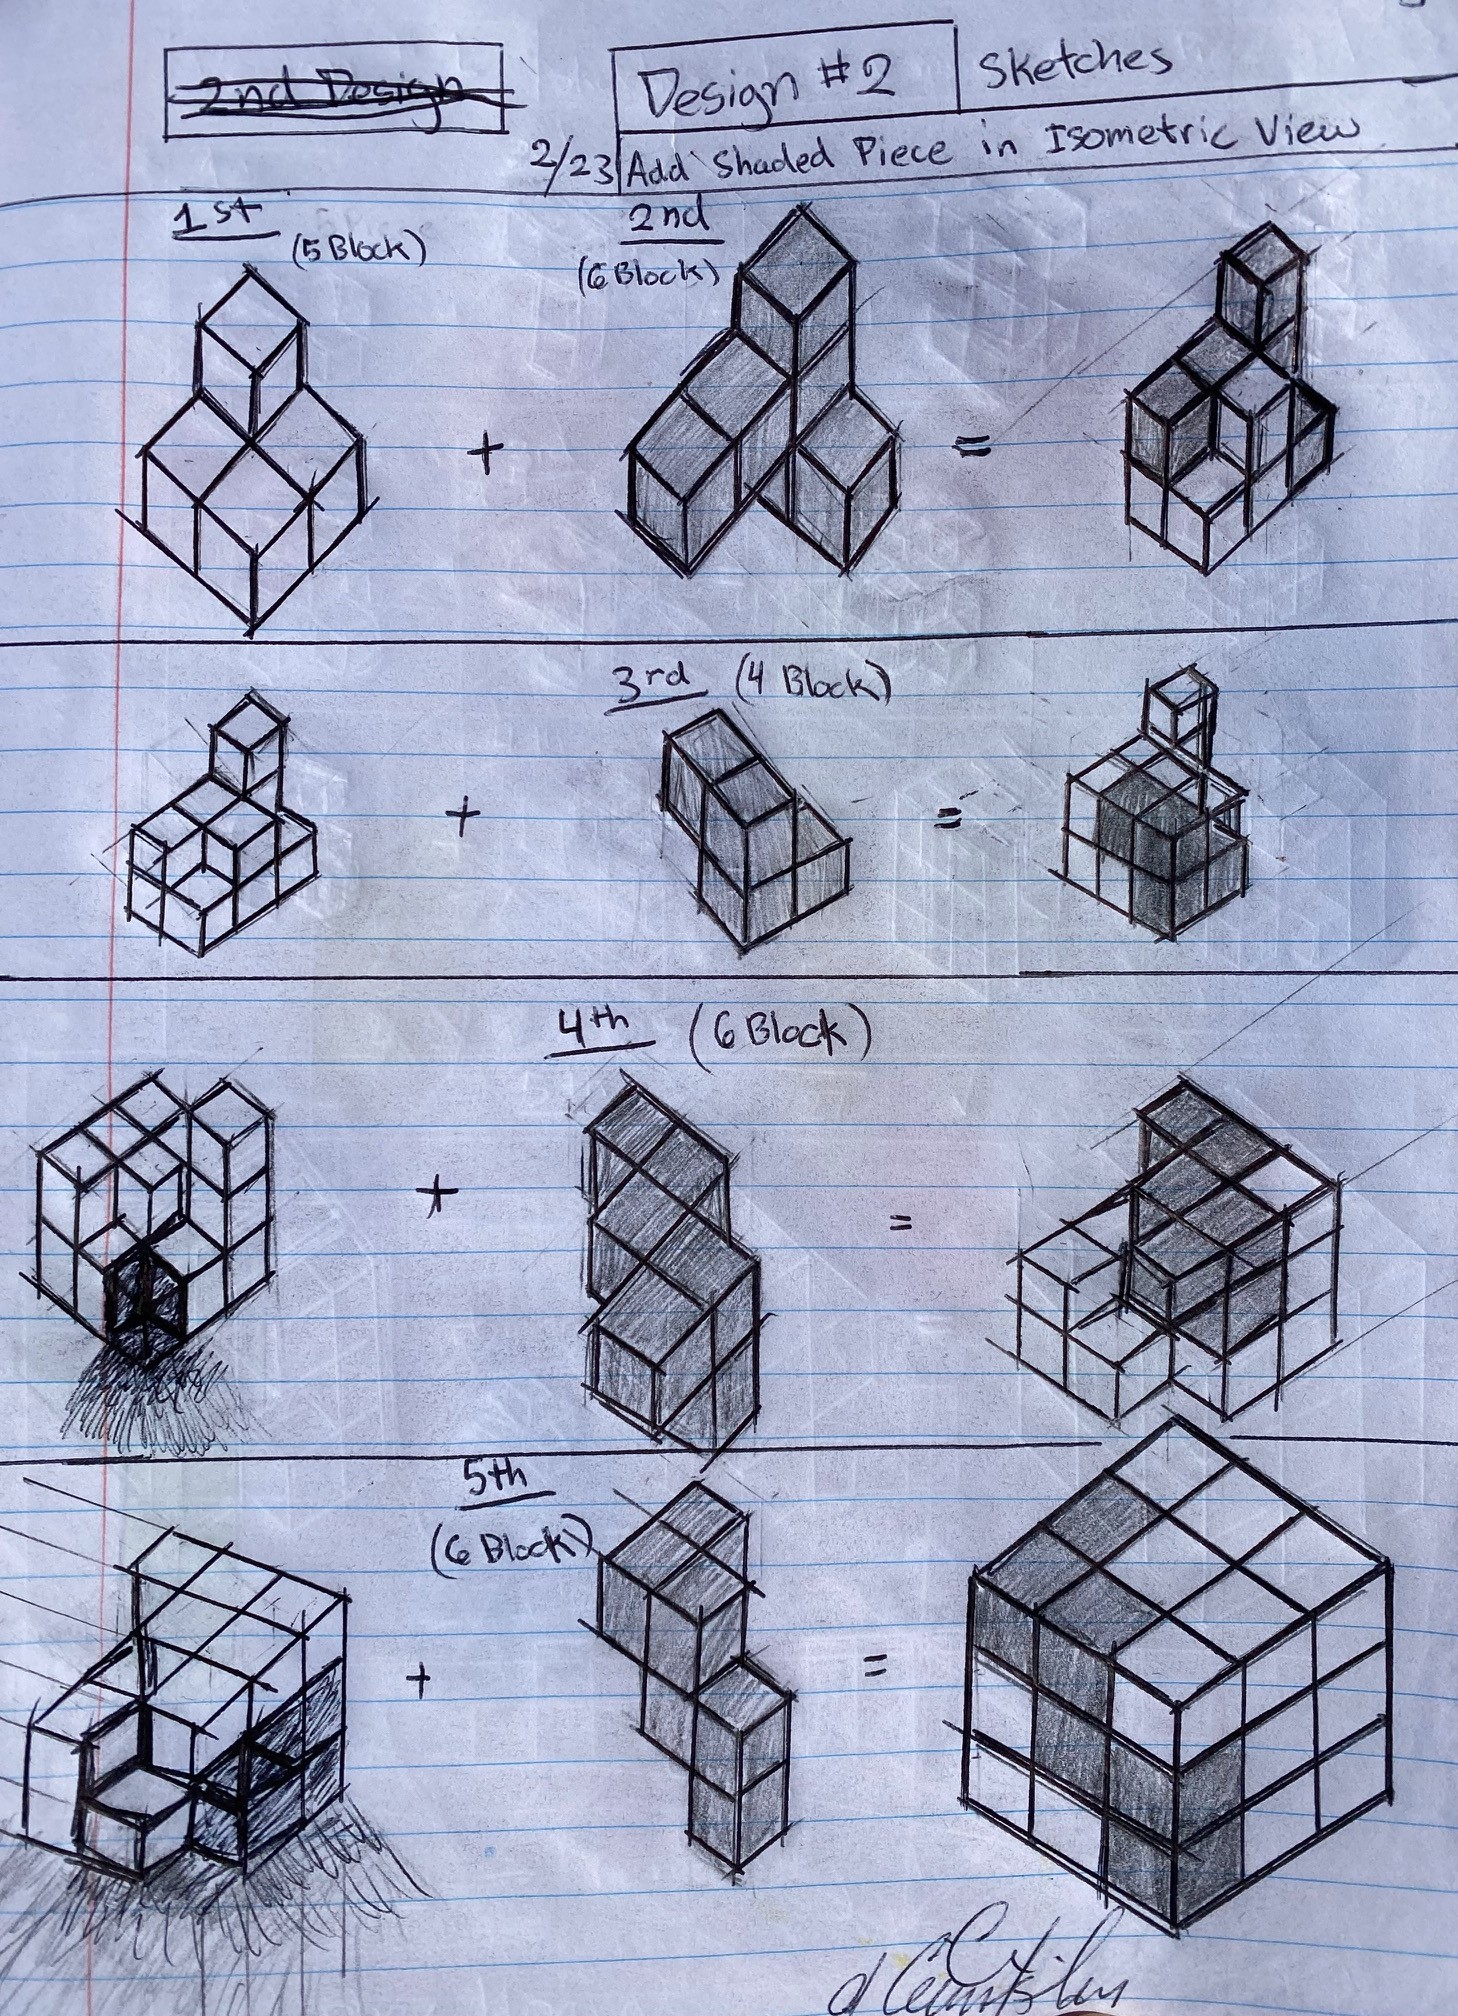 2nd Design
Design #2
Sketches
2/23
Add Shaded Piece in Isometric View
1st
(5 Block)
2nd
(6 Block)
+
=
3rd (4 Block)
+
=
4th (6 Block)
+
=
5th
(6 Block)
+
=